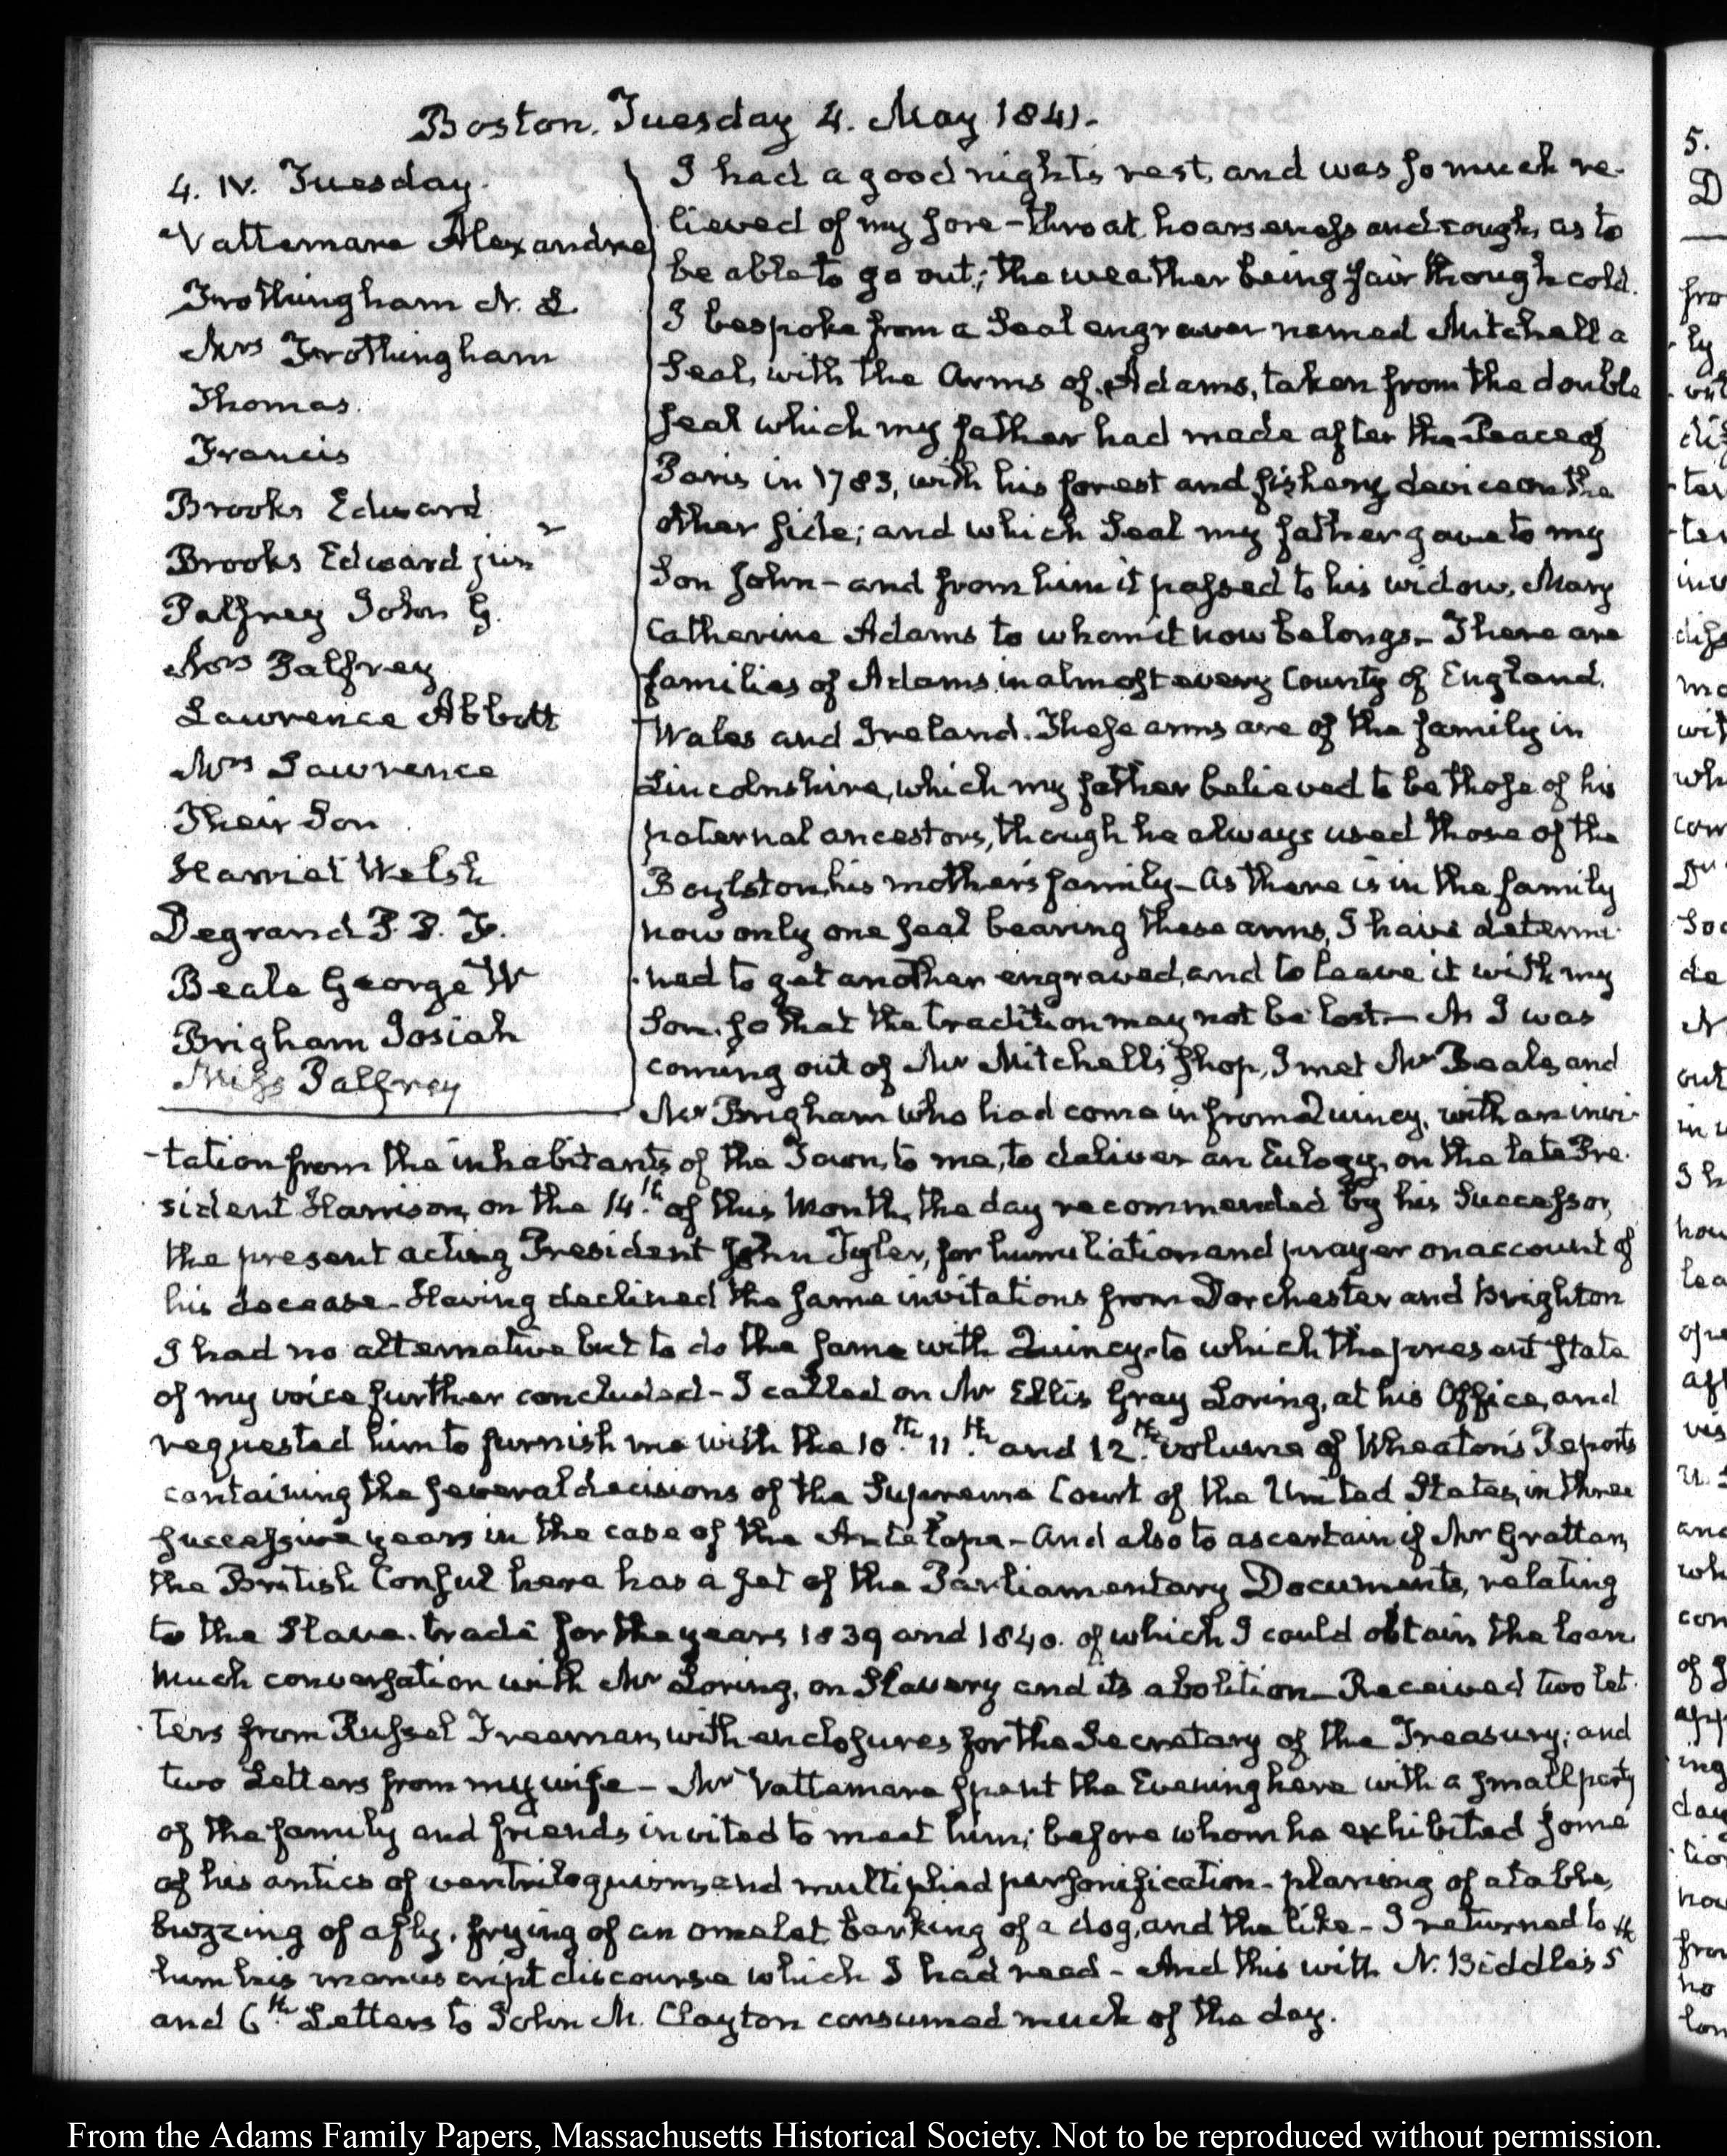 Boston. Tuesday 4. May 1841.
4. IV. Tuesday.
Vattemare Alexandre
Frothingham N. L.
Mrs Frothingham
Thomas.
Francis
Brooks Edward
Brooks Edward junr
Palfrey John G.
Mrs Palfrey
Lawrence Abbott
Mrs Lawrence
Their Son
Harriet Welsh
Degrand P. P. F.
Beale George W
Brigham Josiah
Miss Palfrey
I had a good night's rest, and was so much re-
lieved of my sore-throat, hoarseness and cough, as to
be able to go out; the weather being fair though cold.
I bespoke from a Seal engraver named Mitchell a
Seal, with the Arms of Adams, taken from the double
seal which my father had made after the Peace of
Paris in 1783, with his forest and fishery device on the
other side; and which Seal my father gave to my
Son John - and from him it passed to his widow, Mary
Catherine Adams to whom it now belongs. There are
families of Adams in almost every County of England,
Wales and Ireland. These arms are of the family in
Lincolnshire, which my father believed to be those of his
paternal ancestors, though he always used those of the
Boylston, his mother's family - As there is in the family
now only one seal bearing these arms, I have determi-
-ned to get another engraved, and to leave it with my
Son, so that the tradition may not be lost - As I was
coming out of Mr Mitchell's shop, I met Mr Beale, and
Mr Brigham who had come in from Quincy, with an invi-
-tation from the inhabitants of the Town, to me, to deliver an Eulogy, on the late Pre-
sident Harrison, on the 14th. of this Month, the day recommended by his Successor,
the present acting President John Tyler, for humiliation and prayer on account of
his decease - Having declined the same invitations from Dorchester and Brighton
I had no alternative but to do the same with Quincy, to which the present state
of my voice further concluded - I called on Mr Ellis Gray Loring, at his Office, and
requested him to furnish me with the 10th. 11th. and 12th. volume of Wheaton's Reports
containing the several decisions of the Supreme Court of the United States, in three
successive years in the case of the Antelope - And also to ascertain if Mr Grattan,
the British Consul here has a set of the Parliamentary Documents, relating
to the Slave-trade for the years 1839 and 1840. of which I could obtain the loan.
Much conversation with Mr Loring, on Slavery and its abolition - Received two let-
-ters from Russel Freeman, with enclosures for the Secretary of the Treasury; and
two Letters from my wife - Mr Vattemare spent the Evening here with a small party
of the family and friends, invited to meet him; before whom he exhibited some
of his antics of ventriloquism, and multiplied personification - planing of a table,
buzzing of a fly, frying of an omelet, barking of a dog, and the like - I returned to
him his manuscript discourse which I had read - And this with N. Biddle's 5th
and 6th. Letters to John M. Clayton consumed much of the day.
From the Adams Family Papers, Massachusetts Historical Society. Not to be reproduced without permission.